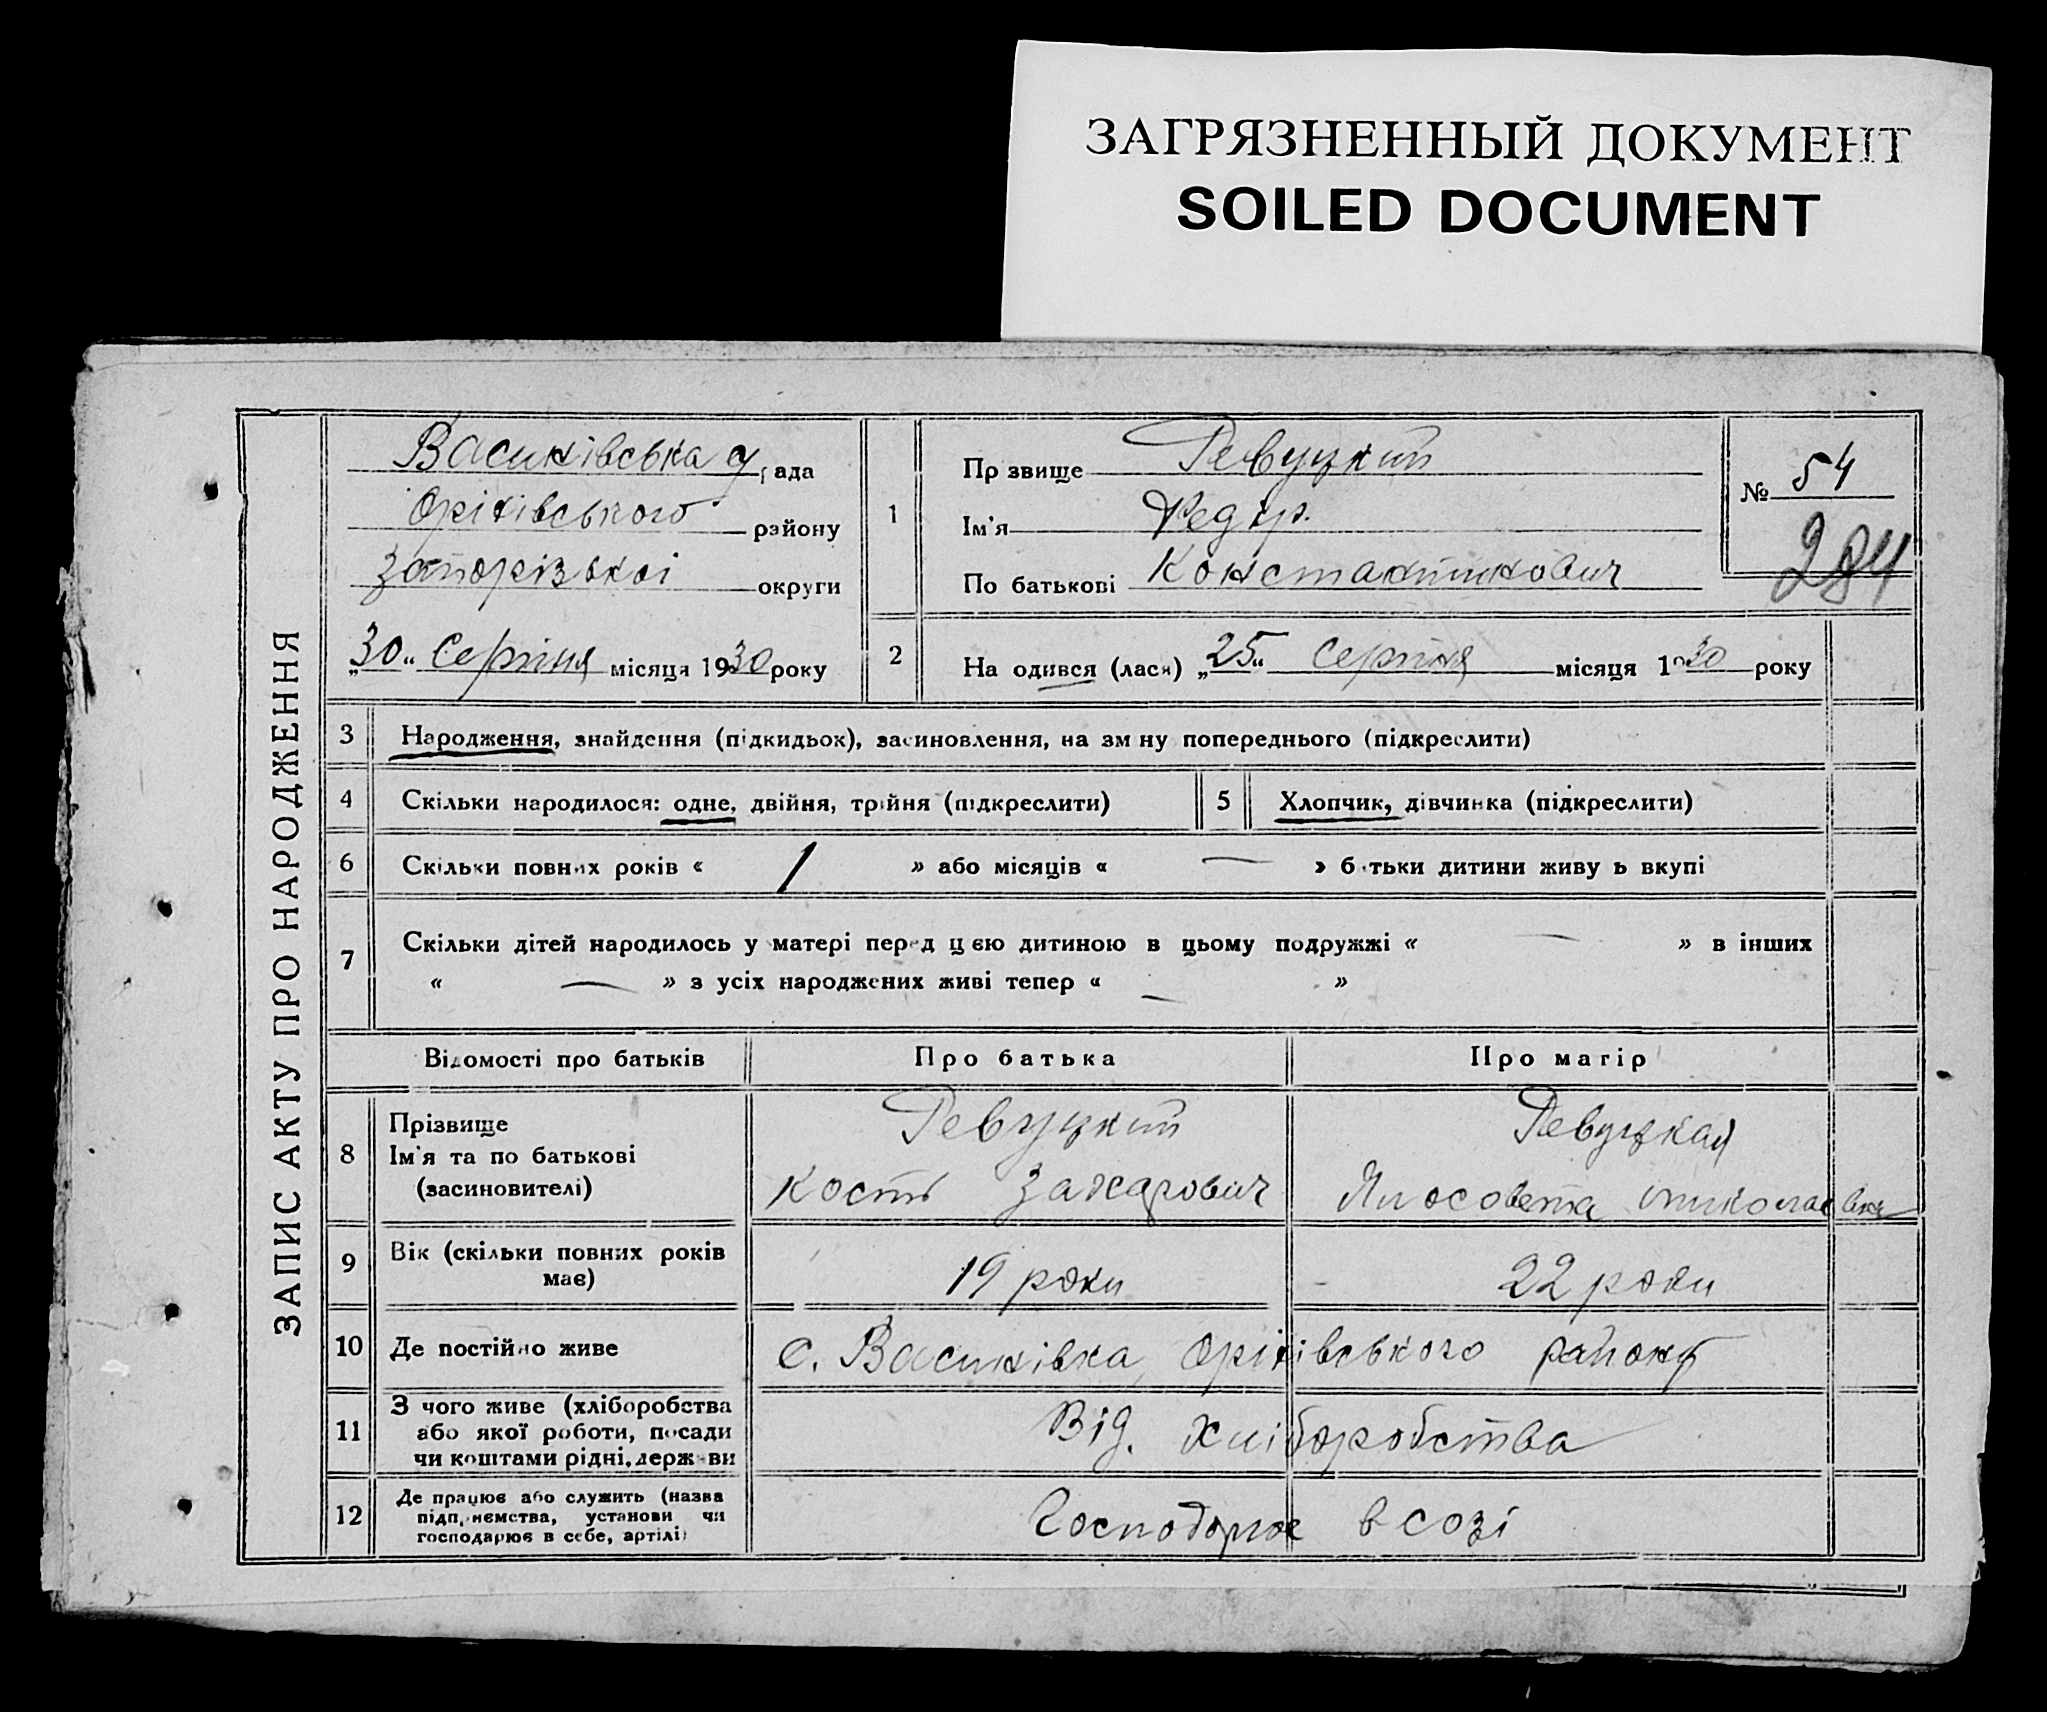 ЗАГРЯЗНЕННЫЙ ДОКУМЕНТ
SOILED DOCUMENT
ЗАПИС АКТУ ПРО НАРОДЖЕННЯ
Васинівська с/рада
Оріхівського району
Запорізької округи
„30“ Серпня місяця 1930 року
1
Прізвище Ревуцкий
Ім'я Федір.
По батькові Константинович
№ 54
284
2
Народився (лася) „25“ Серпня місяця 1930 року
3 Народження, знайдення (підкидьок), засиновлення, на зміну попереднього (підкреслити)
4 Скільки народилося: одне, двійня, трійня (підкреслити)
5 Хлопчик, дівчинка (підкреслити)
6 Скільки повних років « 1 » або місяців « — » батьки дитини живуть вкупі
7 Скільки дітей народилось у матері перед цією дитиною в цьому подружжі « — » в інших
« — » з усіх народжених живі тепер « — »
Відомості про батьків Про батька Про матір
8 Прізвище
Ім'я та по батькові
(засиновителі)
Ревуцкий
Кость Захарович
Ревуцкая
Николаевна
9 Вік (скільки повних років
має)
19 роки
22 роки
10 Де постійно живе
с. Васинівка, Оріхівського району
11 З чого живе (хліборобства
або якої роботи, посади
чи коштами рідні, держави
Від. хліборобства
12 Де працює або служить (назва
підприємства, установи чи
господарює в себе, артілі)
Господарює в созі